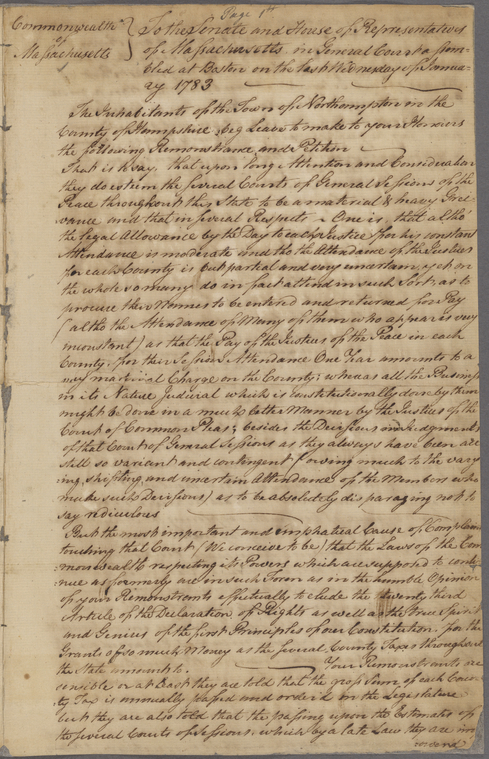 Page 1st
Commonwealth
of
Massachusetts
To the Senate and House of Representatives
of Massachusetts in General Court assem=
bled at Boston on the last Wednesday of Janua=
ry 1783
The Inhabitants of the Town of Northampton in the
County of Hampshire, beg Leave to make to your Honors
the following Remonstrance and Petition
That is to say, that upon long Attention and Consideration
they do esteem the several Courts of General Sessions of the
Peace throughout this State to be a material & heavy Grie
vance and that in several Respects. One is, that altho'
the legal Allowance by the Day to each Justice for his constant
Attendance is moderate and tho the Attendance of the Justices
for each County is but partial and very uncertain, yet on
the whole so many do in fact attend in such Sort as to
procure their Names to be entered and returned for Pay
(altho the Attendance of Many of them who appear is very
inconstant) as that the Pay of the Justices of the Peace in each
County, for their Session Attendance One Year amounts to a
very material Charge on the County; whereas all the Business
in its Nature Judicial which is constitutionally done by them
might be done in a much better Manner by the Justices of the
Court of Common Pleas; besides the Decisions and Judgments
of that Court of General Sessions as they always have been are
still so variant and contingent (owing much to the vary
ing, shifting, and uncertain Attendance of the Members who
make such Decisions) as to be absolutely disparaging not to
say rediculous
But the most important and emphatical Cause of Complaint
touching that Court (We conceive to be) that the Laws of the Com
monwealth respecting its Powers which are supposed to conti
nue as formerly are in such Form as in the humble Opinion
of your Remonstrants effectually to elude the twenty third
Article of the Declaration of Rights as well as the true Spirit
and Genius of the first Principles of our Constitution, for the
Grants of so much Money as the several County Taxes throughout
the State amount to.
Your Remonstrants are
sensible or at least they are told that the gross Sum of each Coun
ty Tax is annually passed and order'd in the Legislature
but they are also told that the passing upon the Estimates of
the several Courts of Sessions, which by a late Law they are im